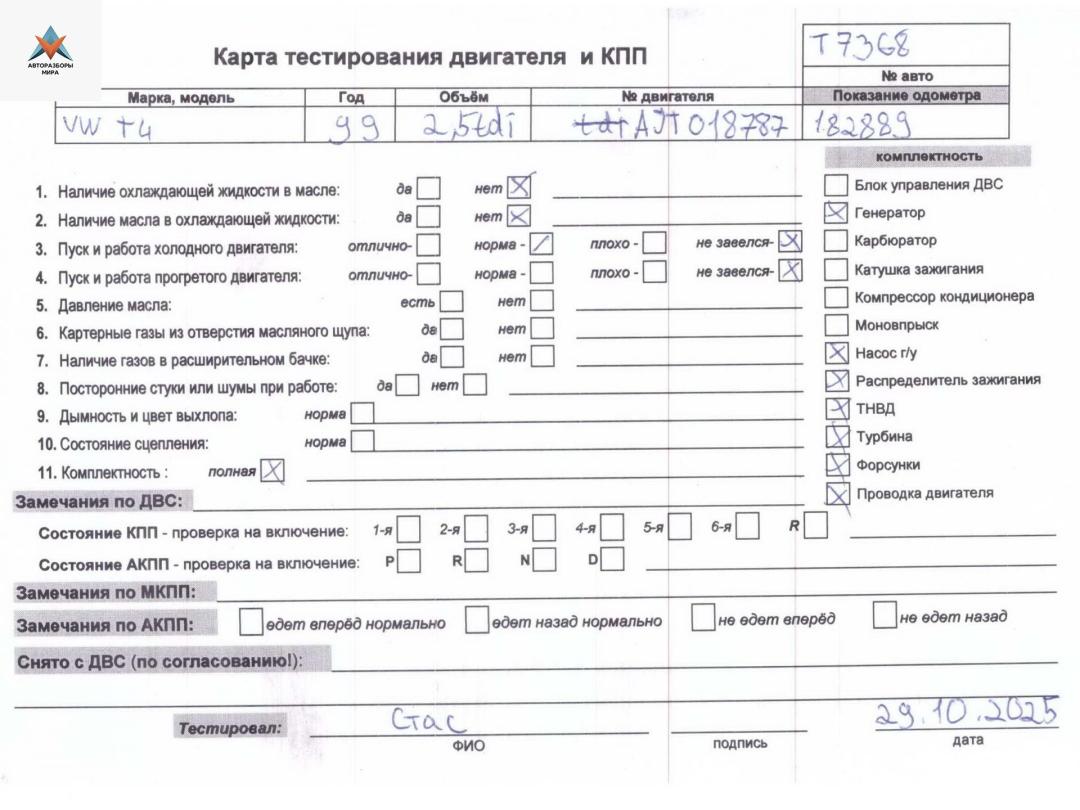 АВТОРАЗБОРЫ
МИРА
Карта тестирования двигателя и КПП
T7368
№ авто
Марка, модель Год Объём № двигателя Показание одометра
VW T4 99 2,5tdi tdi AJT018787 182889
комплектность
1. Наличие охлаждающей жидкости в масле: да нет
2. Наличие масла в охлаждающей жидкости: да нет
3. Пуск и работа холодного двигателя: отлично- норма - плохо - не завелся-
4. Пуск и работа прогретого двигателя: отлично- норма - плохо - не завелся-
5. Давление масла: есть нет
6. Картерные газы из отверстия масляного щупа: да нет
7. Наличие газов в расширительном бачке: да нет
8. Посторонние стуки или шумы при работе: да нет
9. Дымность и цвет выхлопа: норма
10. Состояние сцепления: норма
11. Комплектность : полная
Блок управления ДВС
Генератор
Карбюратор
Катушка зажигания
Компрессор кондиционера
Моновпрыск
Насос г/у
Распределитель зажигания
ТНВД
Турбина
Форсунки
Проводка двигателя
Замечания по ДВС:
Состояние КПП - проверка на включение: 1-я 2-я 3-я 4-я 5-я 6-я R
Состояние АКПП - проверка на включение: P R N D
Замечания по МКПП:
Замечания по АКПП: едет вперёд нормально едет назад нормально не едет вперёд не едет назад
Снято с ДВС (по согласованию!):
Тестировал: Стас 29.10.2025
ФИО подпись дата